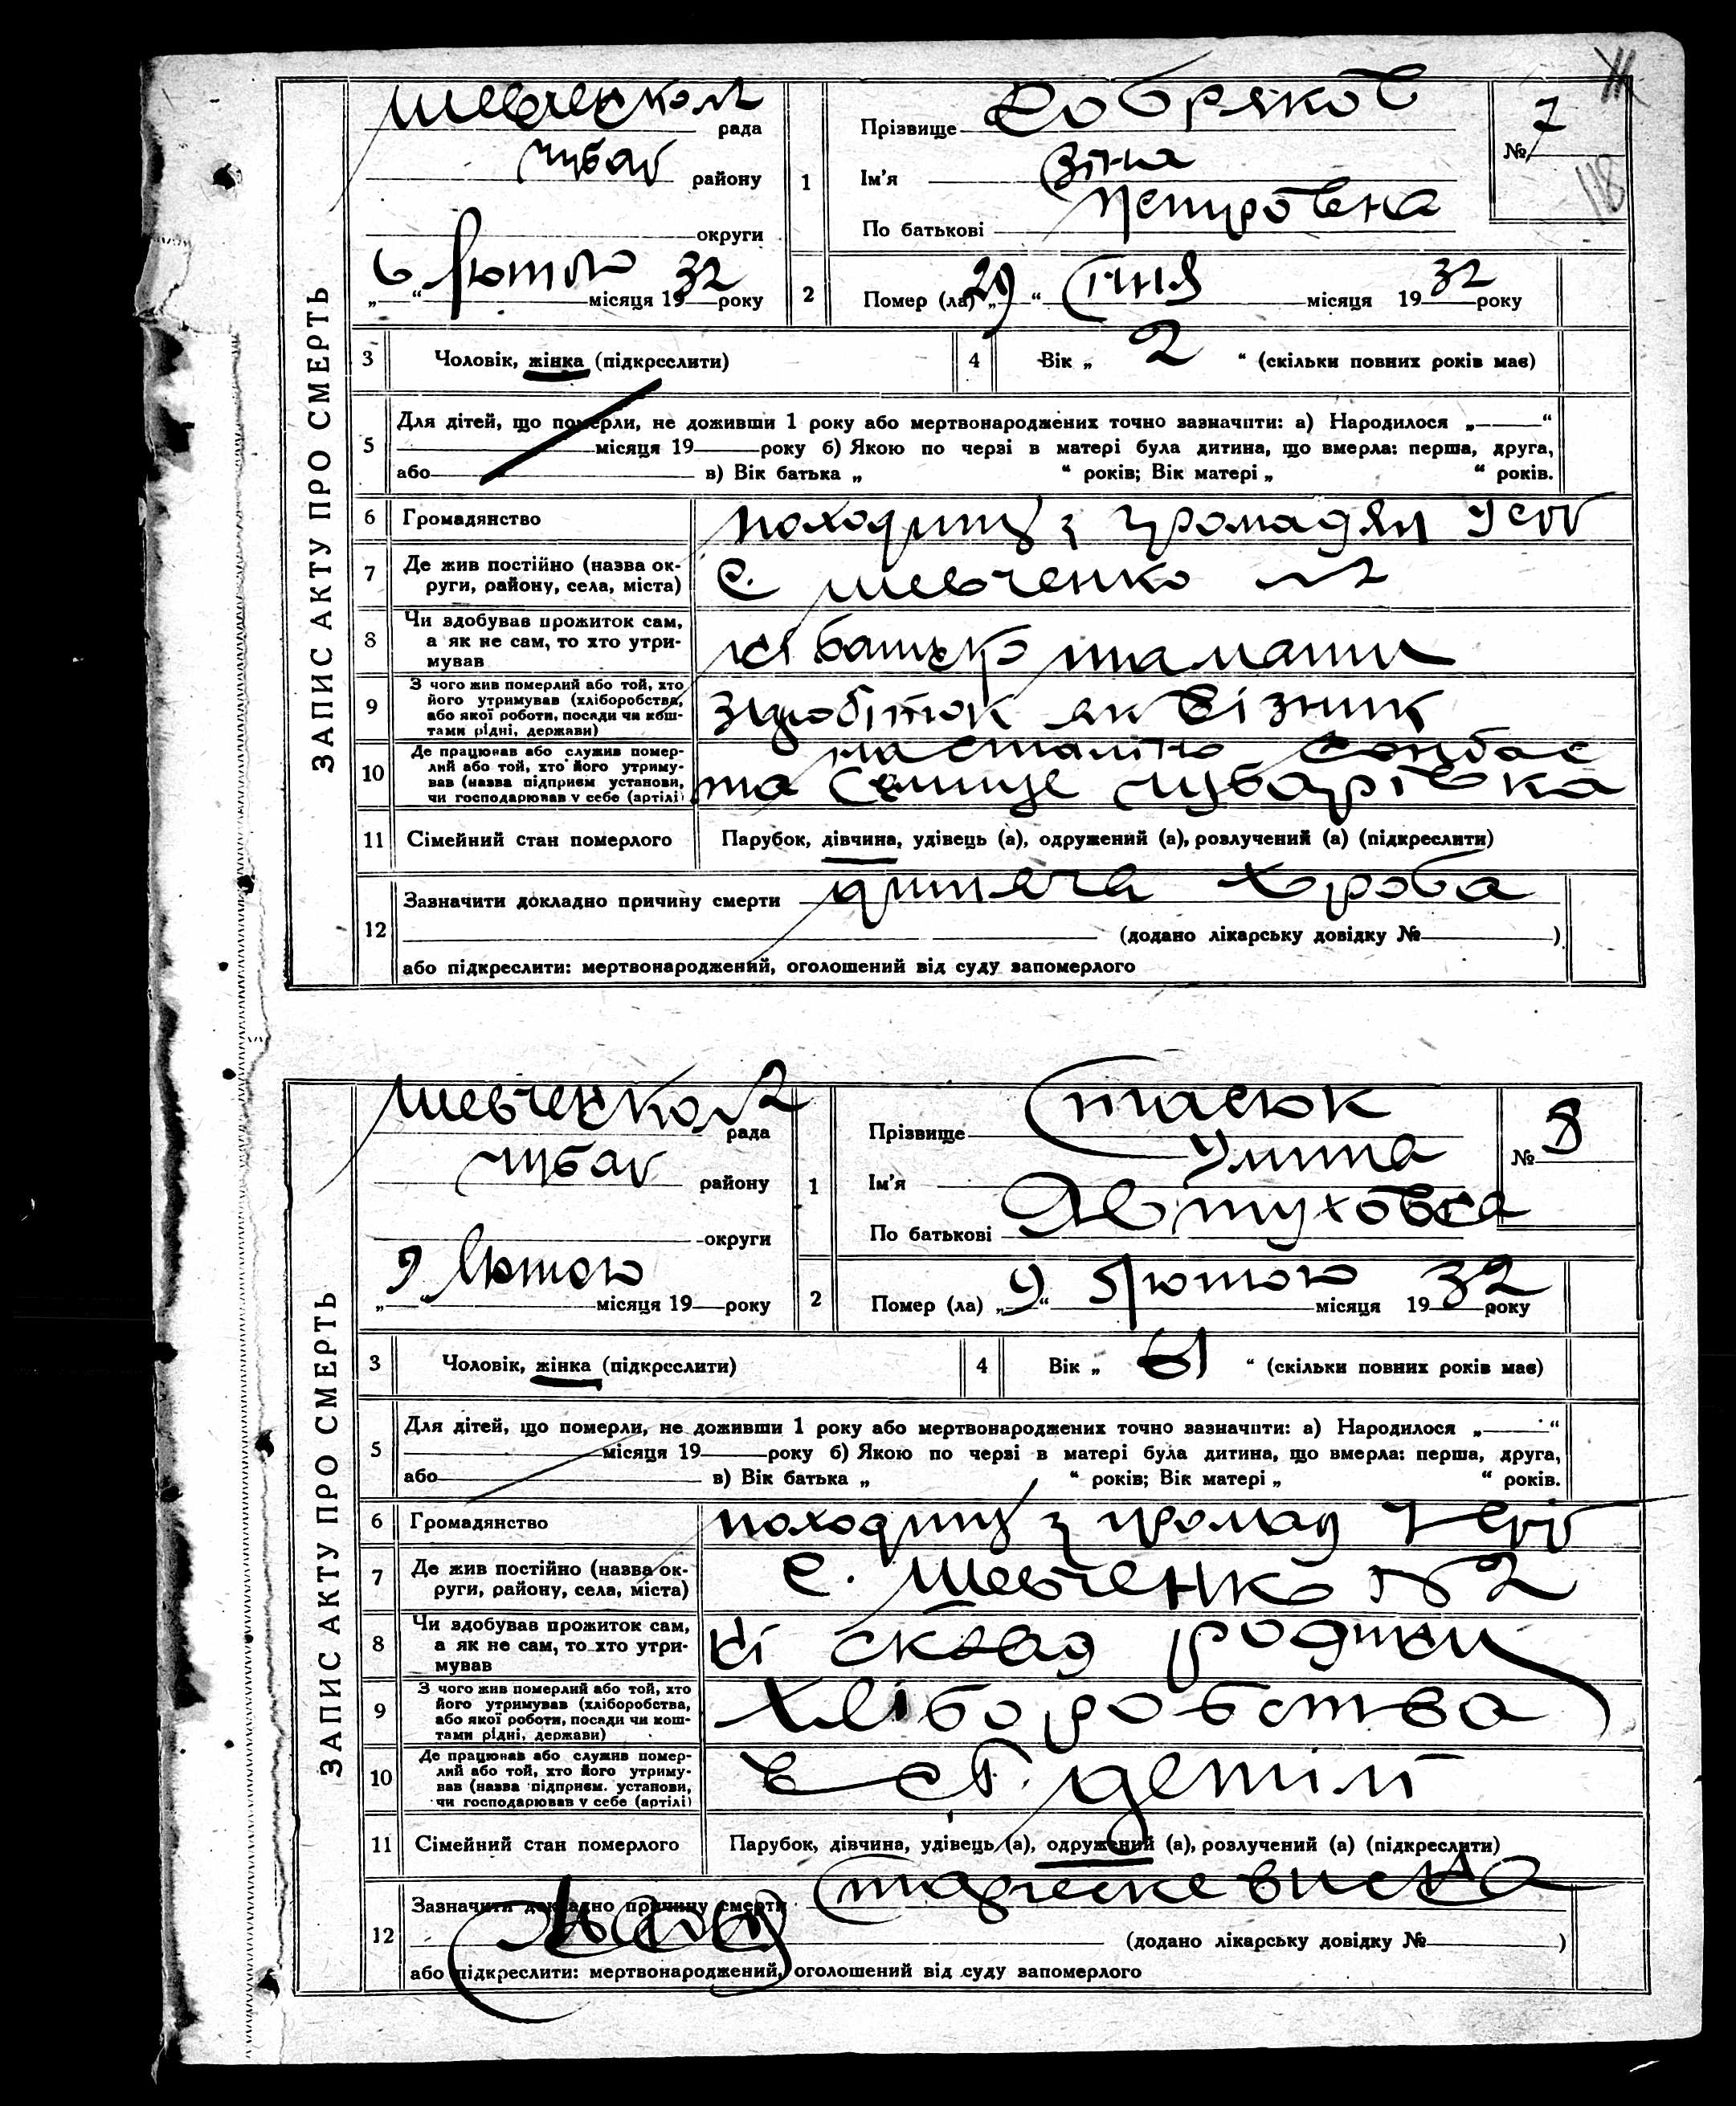 ЗАПИС АКТУ ПРО СМЕРТЬ
Шевченко №2 рада
Чубар району
округи
„6“ лютого місяця 1932 року
1 Прізвище Добряков
Ім'я Зіна
По батькові Петровена
№ 7
118
2 Помер (ла) „29“ січня місяця 1932 року
3 Чоловік, жінка (підкреслити)
4 Вік „ 2 “ (скільки повних років має)
5 Для дітей, що померли, не доживши 1 року або мертвонароджених точно зазначити: а) Народилося „ “
місяця 19 року б) Якою по черзі в матері була дитина, що вмерла: перша, друга,
або в) Вік батька „ “ років; Вік матері „ “ років.
6 Громадянство походить з громадян УСРР
7 Де жив постійно (назва округи, району, села, міста) с. Шевченко №2
8 Чи здобував прожиток сам, а як не сам, то хто утримував її батько та мати
9 З чого жив померлий або той, хто його утримував (хліборобства, або якої роботи, посади чи коштами рідні, держави) зиробіток як візник
10 Де працював або служив померлий або той, хто його утримував (назва підприєм установи, чи господарював у себе (артілі) на
та Чубарівка
11 Сімейний стан померлого Парубок, дівчина, удівець (а), одружений (а), розлучений (а) (підкреслити)
12 Зазначити докладно причину смерти дитяча хороба
(додано лікарську довідку № )
або підкреслити: мертвонароджений, оголошений від суду запомерлого
ЗАПИС АКТУ ПРО СМЕРТЬ
Шевченко №2 рада
Чубар району
округи
„9“ лютого місяця 19 року
1 Прізвище Стасюк
Ім'я Улита
По батькові Явтуховна
№ 8
2 Помер (ла) „9“ лютого місяця 1932 року
3 Чоловік, жінка (підкреслити)
4 Вік „ 61 “ (скільки повних років має)
5 Для дітей, що померли, не доживши 1 року або мертвонароджених точно зазначити: а) Народилося „ “
місяця 19 року б) Якою по черзі в матері була дитина, що вмерла: перша, друга,
або в) Вік батька „ “ років; Вік матері „ “ років.
6 Громадянство походить з громад УСРР
7 Де жив постійно (назва округи, району, села, міста) с. Шевченко №2
8 Чи здобував прожиток сам, а як не сам, то хто утримував її склад родини
9 З чого жив померлий або той, хто його утримував (хліборобства, або якої роботи, посади чи коштами рідні, держави) хліборобства
10 Де працював або служив померлий або той, хто його утримував (назва підприєм. установи, чи господарював у себе (артілі) в
11 Сімейний стан померлого Парубок, дівчина, удівець (а), одружений (а), розлучений (а) (підкреслити)
12 Зазначити докладно причину смерти
(додано лікарську довідку № )
або підкреслити: мертвонароджений, оголошений від суду запомерлого